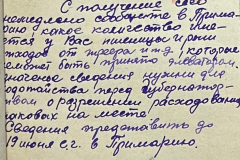 С получение сего
немедленно сообщите в Прима-
рию какое количество име-
ется у Вас пшеницы и ржи
отходов от триера и т.д., которые
может быть принято элеватором.
сведения нужны для
ходотайства перед Губернатор-
твом о разрешении расходования
таковых на месте
Сведения представить до
19 июня с.г. в Примарию.